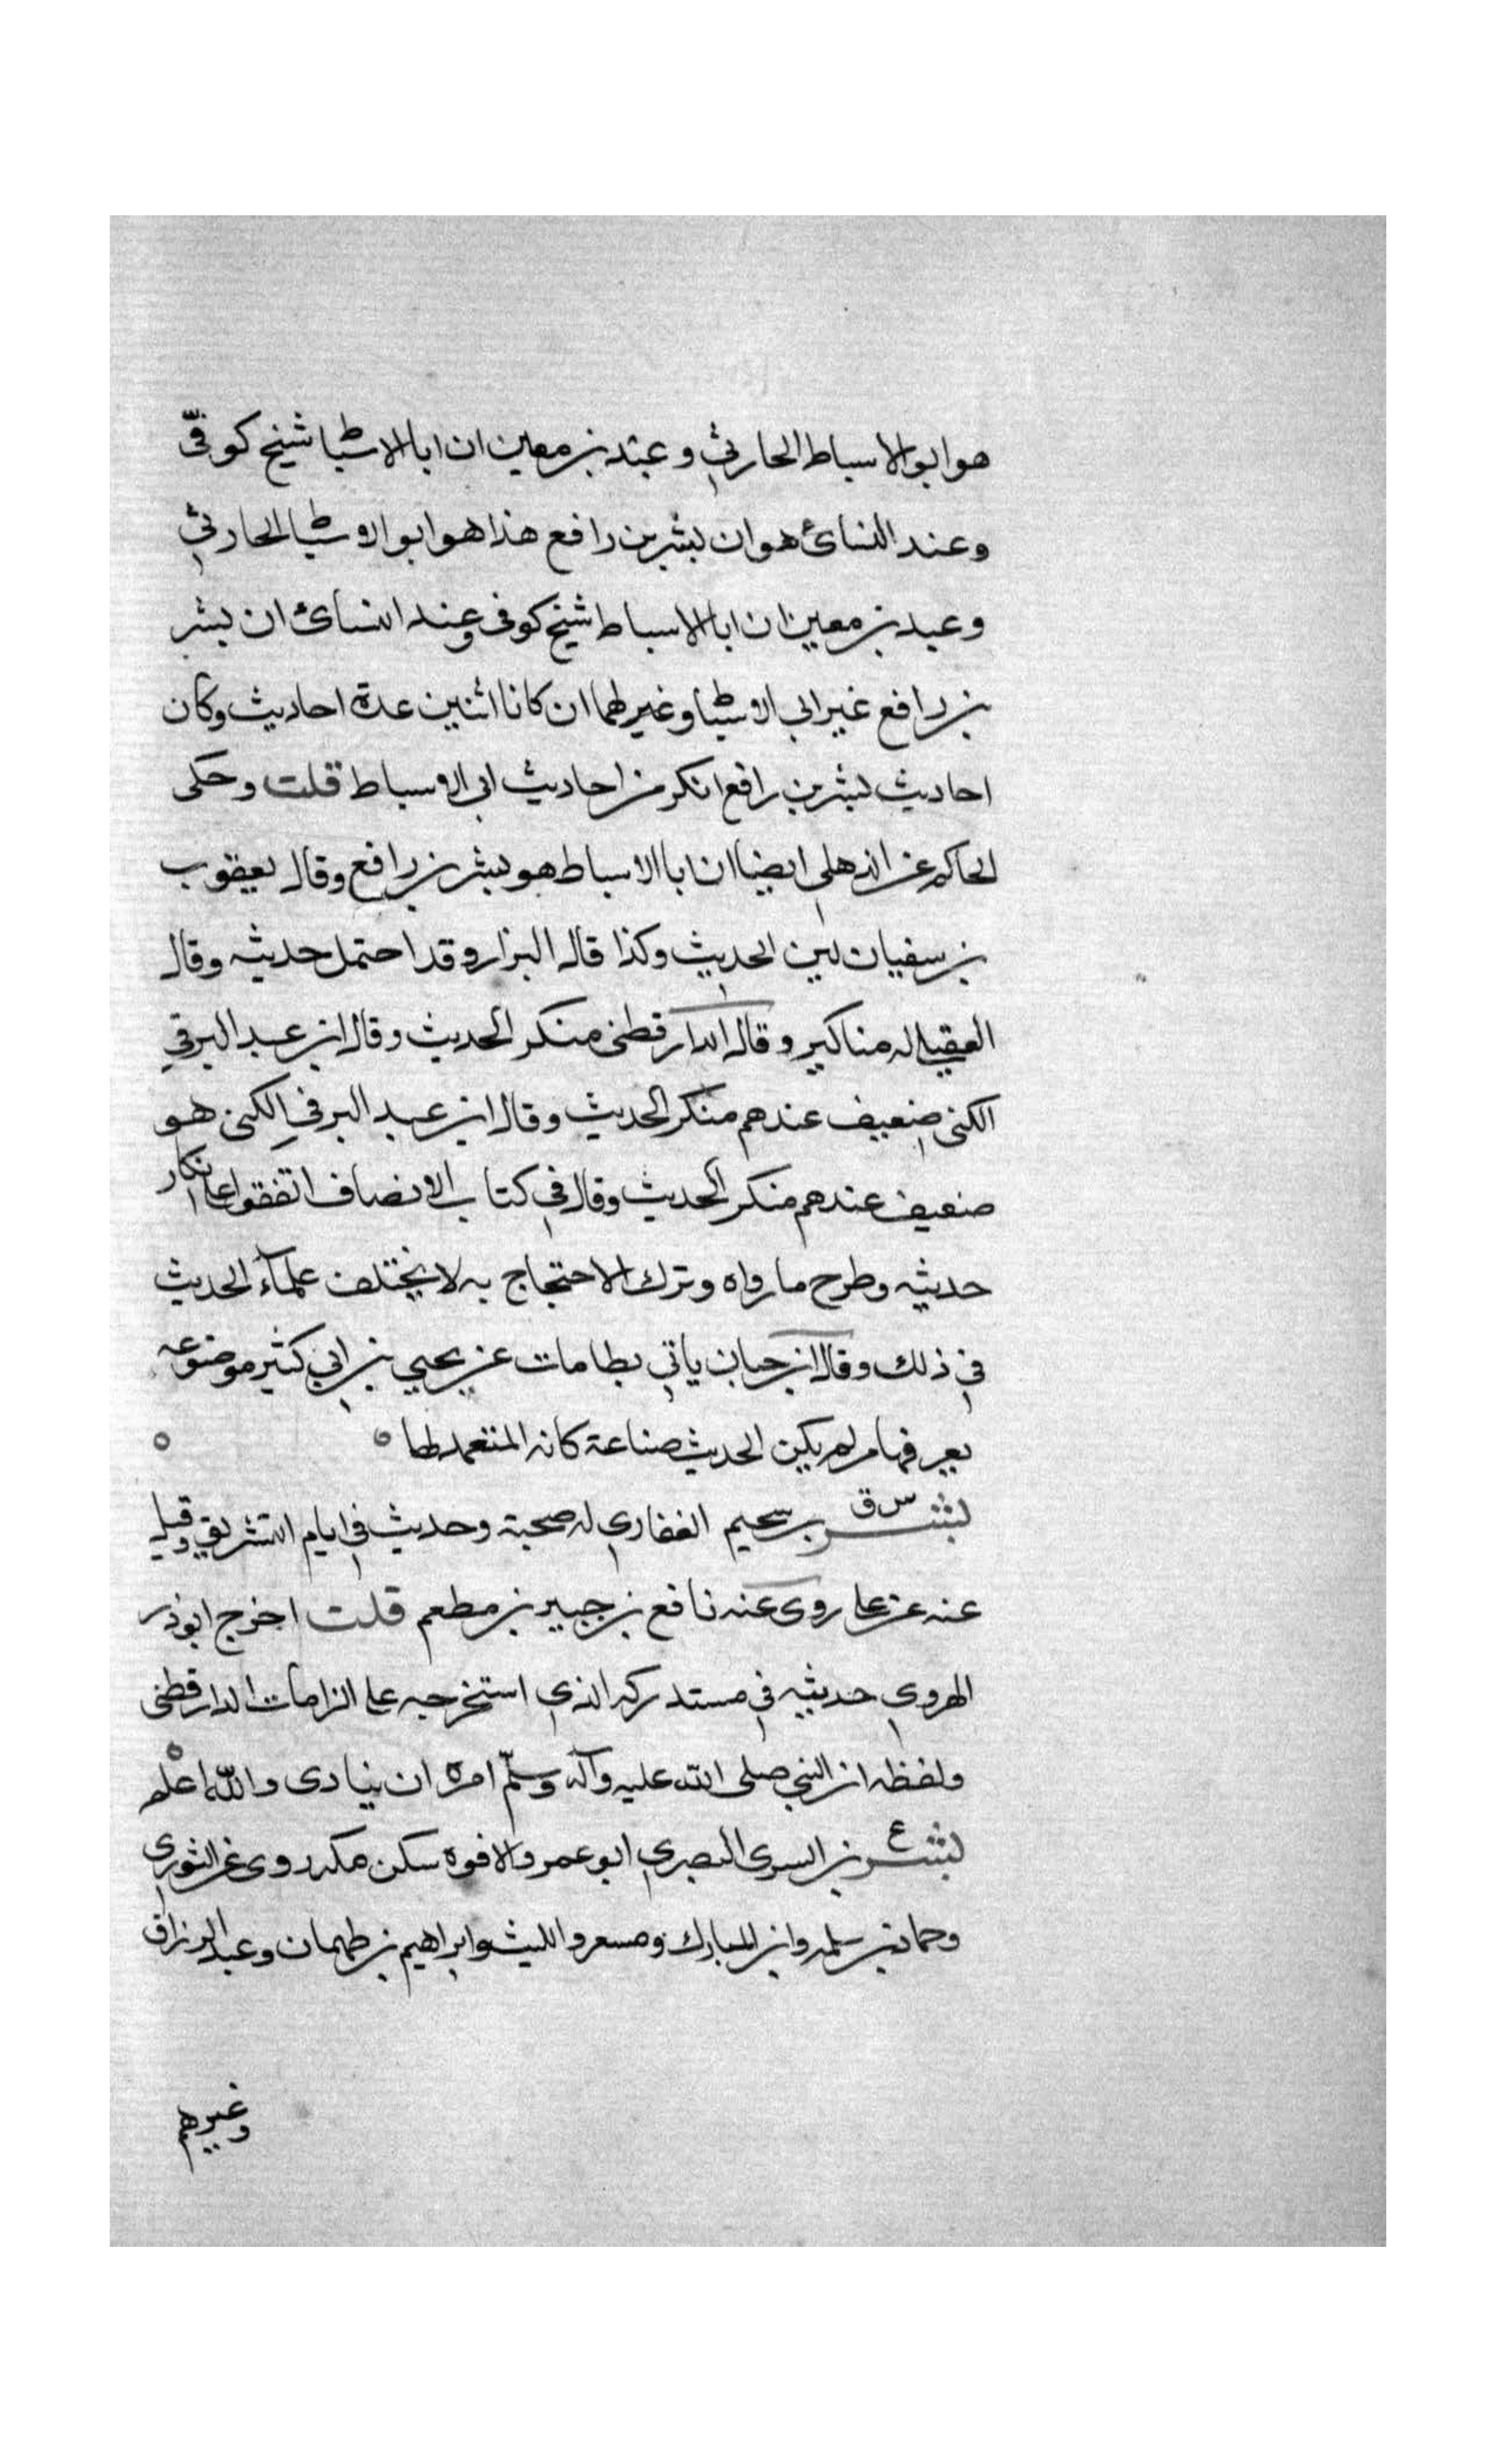 هو ابو الاسباط الحارثي وعند بن معين ان ابا الاسباط شيخ كوفي
وعند النسائ هو ان بشر بن رافع هذا هو ابو الاسباط الحارثي
وعند بن معين ان ابا الاسباط شيخ كوفي وعند النسائ ان بشر
بن رافع غير ابي الاسباط وغيرهما ان كانا اثنين عدة احاديث وكان
احاديث بشر بن رافع انكر من احاديث ابي الاسباط قلت وحكى
الحاكم عن الذهلي ايضا ان ابا الاسباط هو بشر بن رافع وقال يعقوب
بن سفيان لين الحديث وكذا قال البزار وقد احتمل حديثه وقال
العقيلي له مناكير وقال الدارقطني منكر الحديث وقال ابن عبد البر في
الكنى ضعيف عندهم منكر الحديث وقال ابن عبد البر في الكنى هو
ضعيف عندهم منكر الحديث وقال في كتاب الانصاف اتفقوا على انكار
حديثه وطرح ما رواه وترك الاحتجاج به لا يختلف علماء الحديث
في ذلك وقال ابن حبان ياتي بطامات عن يحيي بن ابي كثير موضوعه
يعرفها من لم يكن الحديث صناعة كانه المتعمد لها
س ق
بشر بن سحيم الغفاري له صحبة وحديث في ايام التشريق وقيل
عنه عن علي روى عنه نافع بن جبير بن مطعم قلت اخرج ابو ذر
الهروي حديثه في مستدركه الذي استخرجه على الزامات الدارقطني
ولفظه ان النبي صلى الله عليه وآله وسلّم امره ان ينادى والله اعلم
ع
بشر بن السرى البصري ابو عمرو الافوه سكن مكه روى عن الثوري
وحماد بن سلمه وابن المبارك ومسعر والليث وابراهيم بن طهمان وعبد الرزاق
وغيرهم